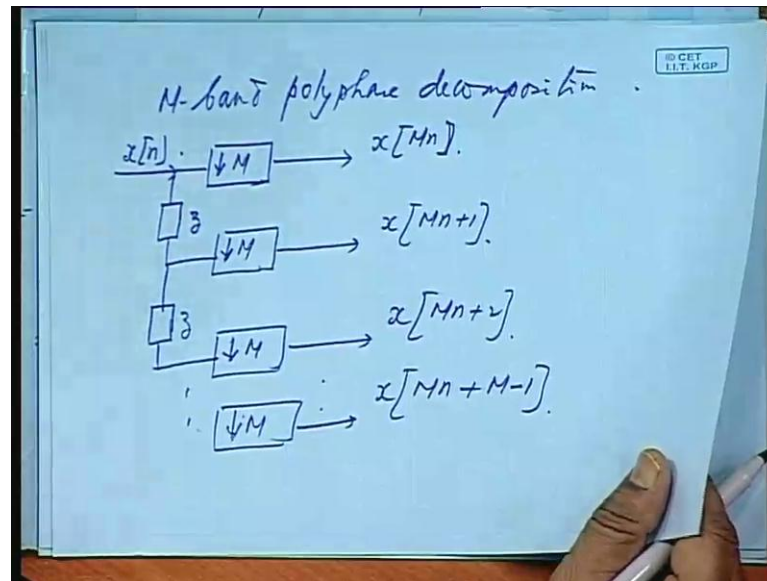 © CET
I.I.T. KGP
M-band polyphase decomposition.
x[n].
↓M
x[Mn].
z
↓M
x[Mn+1].
z
↓M
x[Mn+2].
↓M
x[Mn+M-1].